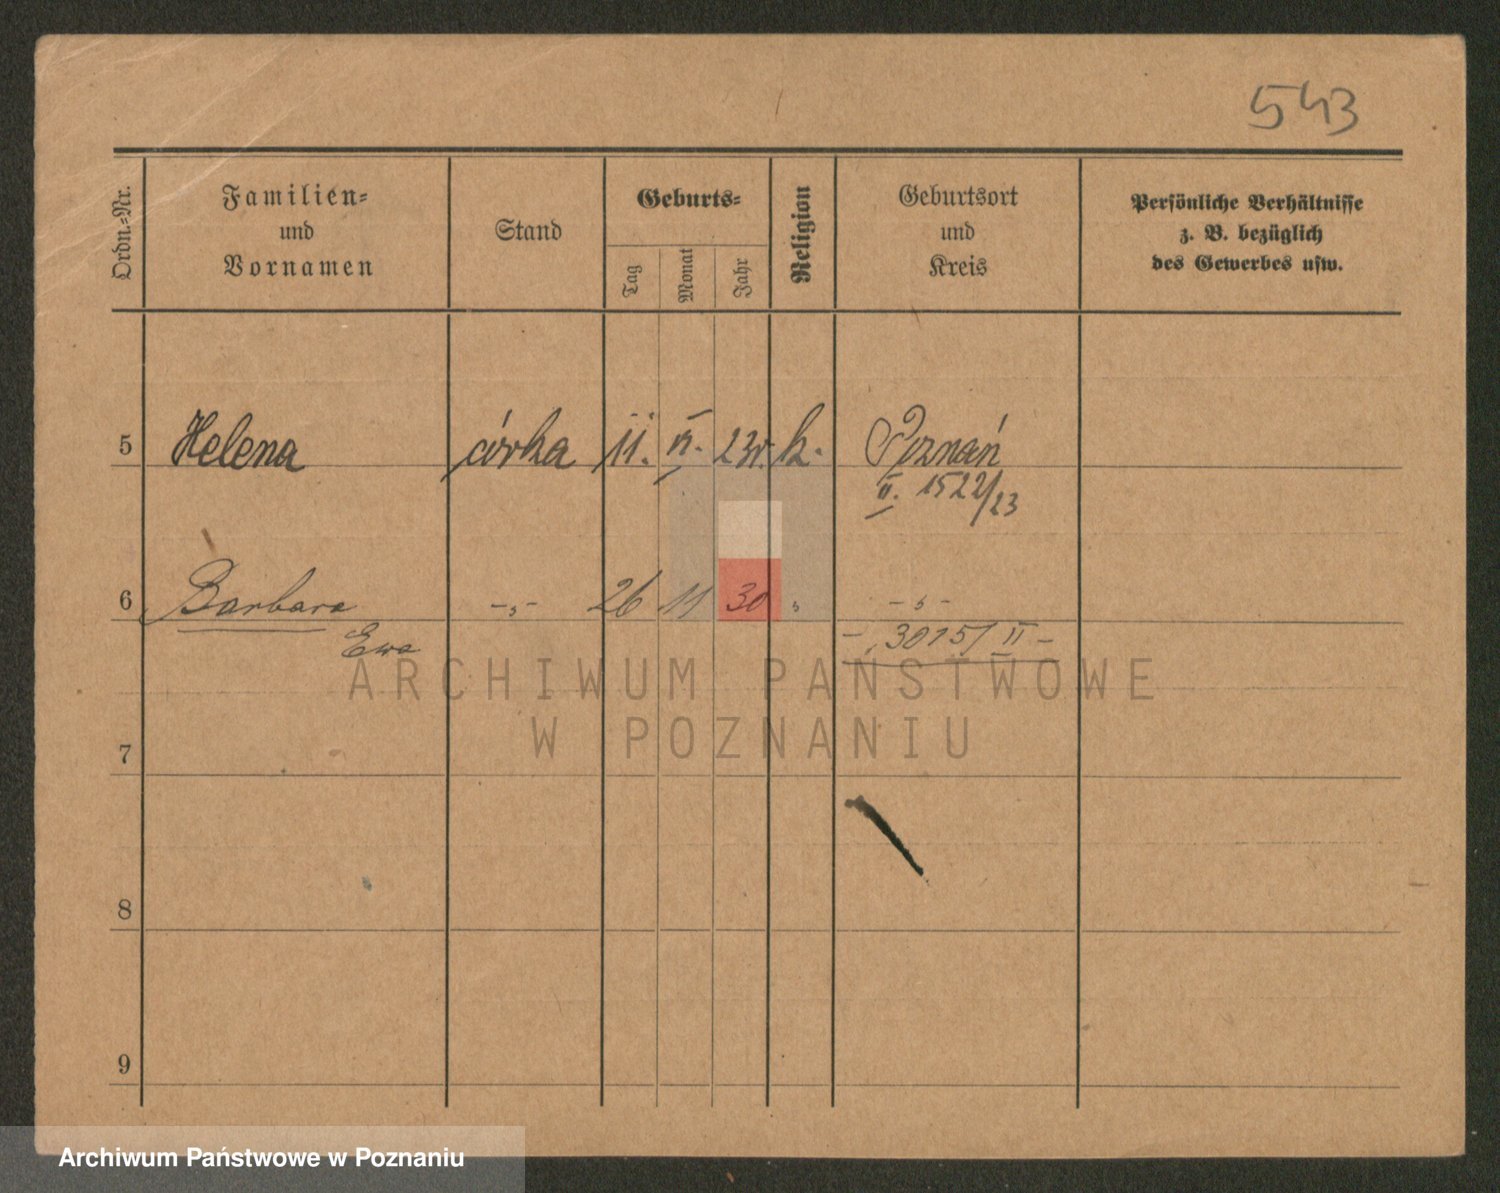 543
Ordn.-Nr.
Familien-
und
Vornamen
Stand
Geburts-
Tag
Monat
Jahr
Religion
Geburtsort
und
Kreis
Persönliche Verhältnisse
z. B. bezüglich
des Gewerbes usw.
5 Helena córka 11. VI. 23r. k. Poznań
II. 1522/23
6 Barbara -„- 26 11 30 „ -„-
Ewa 3015/II
ARCHIWUM PAŃSTWOWE
W POZNANIU
7
8
9
Archiwum Państwowe w Poznaniu